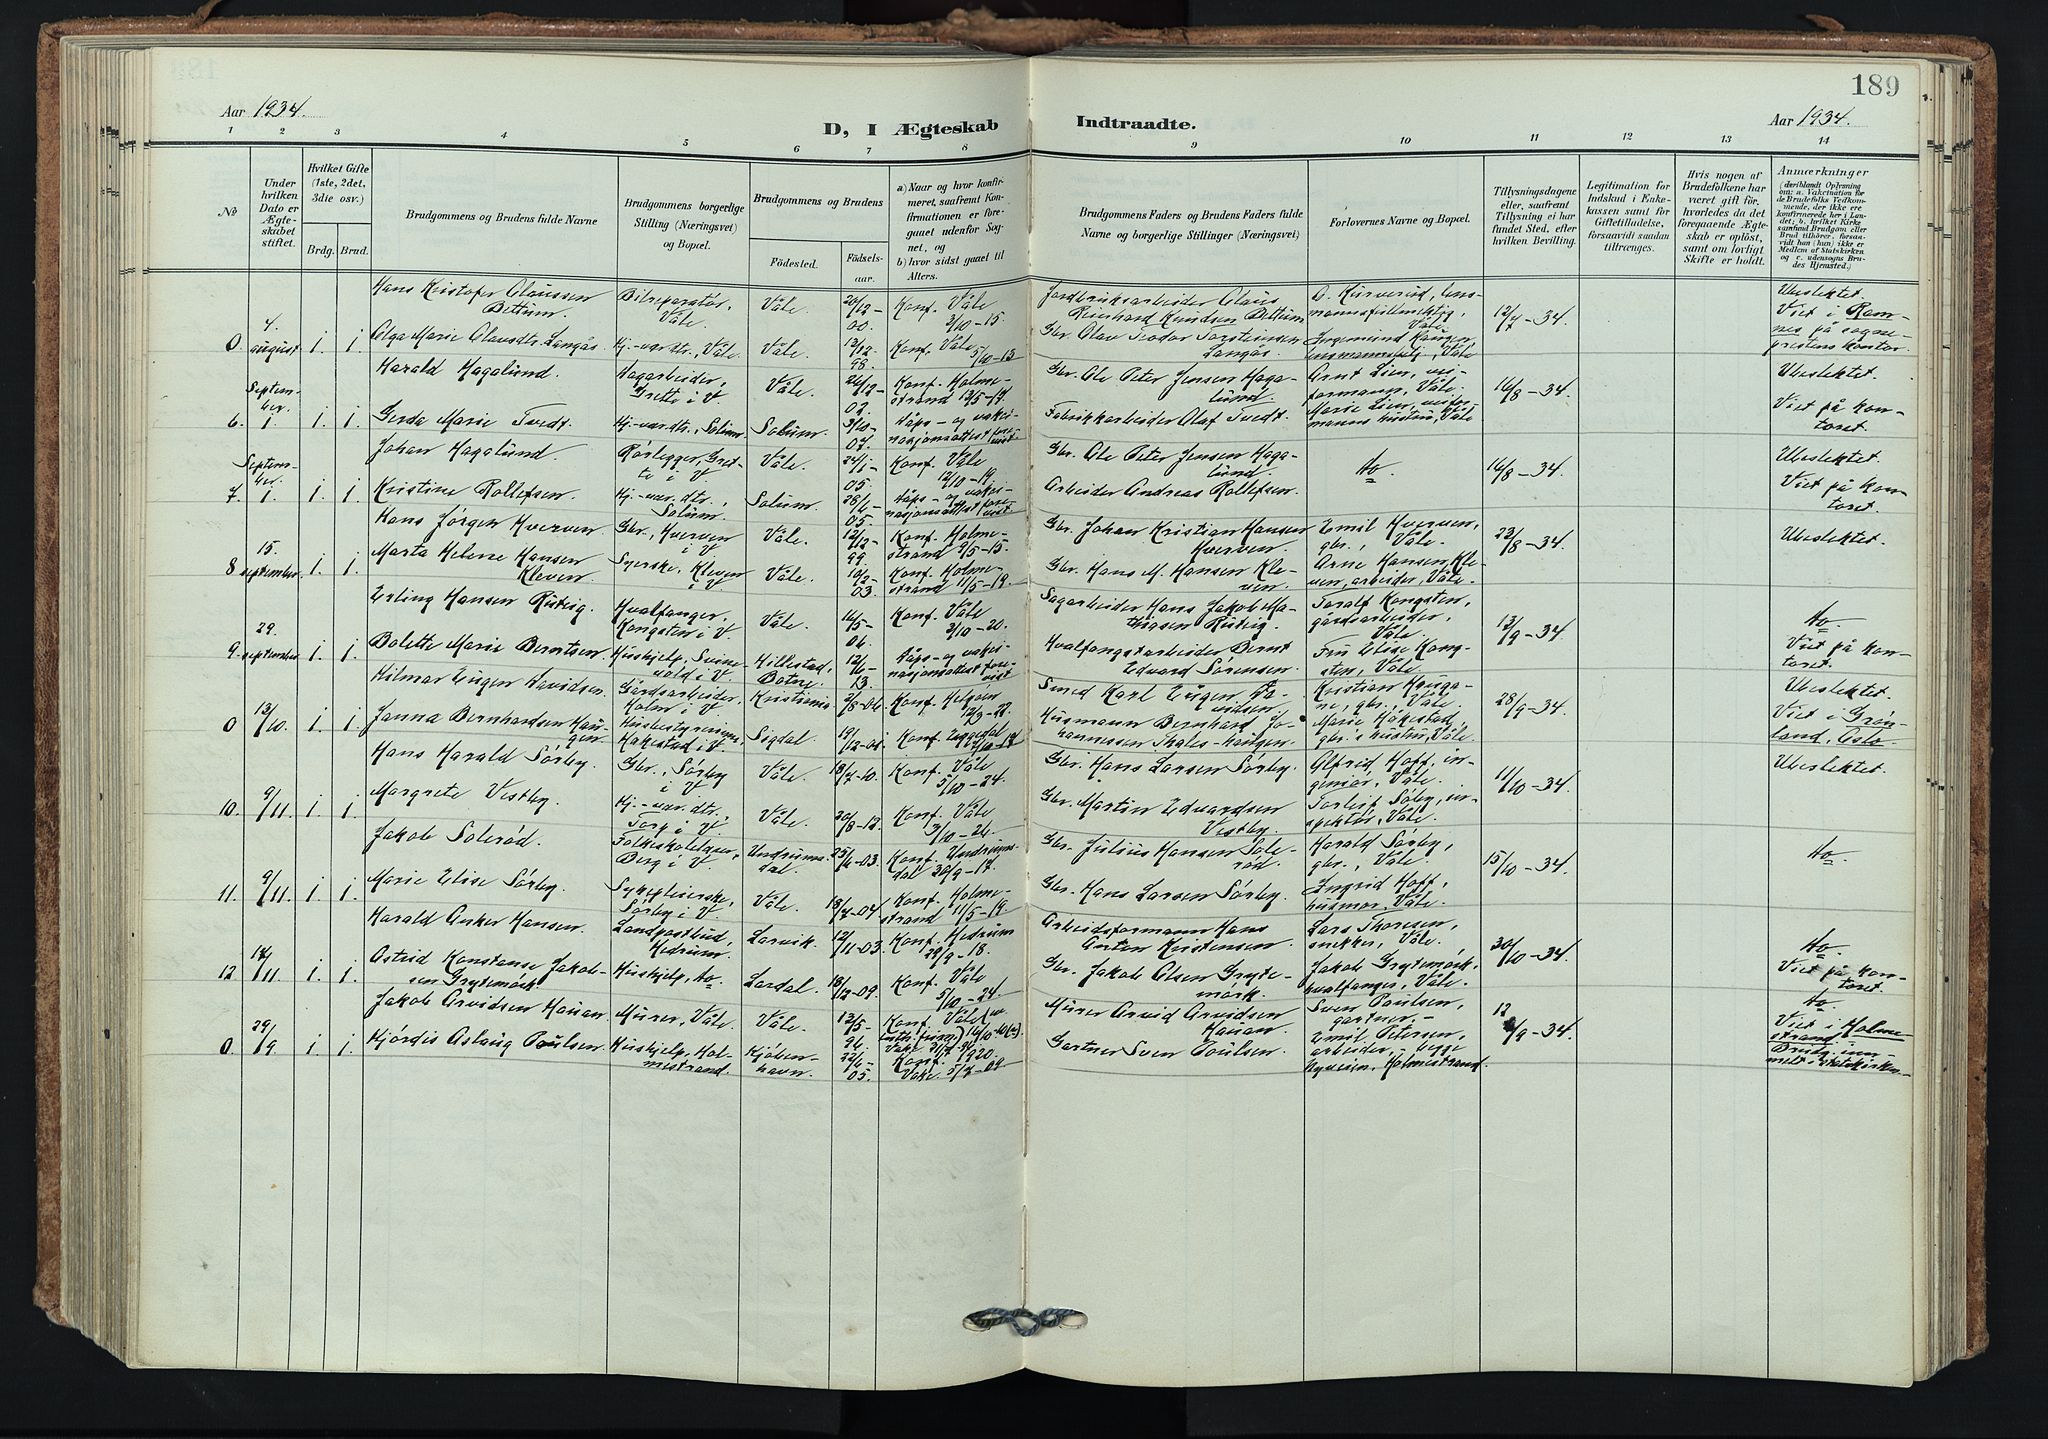 189
Aar 1934.
D, I Ægteskab
Indtraadte.
Aar 1934.
1 2 3 4 5 6 7 8 9 10 11 12 13 14
No
Under hvilken Dato er Ægteskabet stiftet.
Hvilket Gifte (1ste, 2det, 3die osv.)
Brdg. Brud.
Brudgommens og Brudens fulde Navne
Brudgommens borgerlige Stilling (Næringsvet) og Bopæl.
Brudgommens og Brudens
Fødested.
Fødselsaar.
a) Naar og hvor konfirmeret, saafremt Konfirmationen er foregaaet udenfor Sognet, og
b) hvor sidst gaaet til Alters.
Brudgommens Faders og Brudens Faders fulde Navne og borgerlige Stillinger (Næringsvet)
Forlovernes Navne og Bopæl.
Tillysningsdagene eller, saafremt Tillysning ei har fundet Sted, efter hvilken Bevilling.
Legitimation for Indskud i Enkekassen samt for Giftetilladelse, forsaavidt saadan tiltrænges.
Hvis nogen af Brudefolkene har været gift før, hvorledes da det foregaaende Ægteskab er opløst, samt om lovligt Skifte er holdt.
Anmærkninger
(deriblandt Oplysning om: a. Vakcination for de Brudefolks Vedkommende, der ikke ere konfirmerede her i Landet; b. hvilket Kirkesamfund Brudgom eller Brud tilhører, forsaavidt han (hun) ikke er Medlem af Statskirken og c. udensogns Brudes Hjemsted.)
0 4. august 1. 1.
Hans Kristofer Olaussen Bettum. Bilreparatør, Våle. Våle 20/12-00. Konf. Våle 3/10-15.
Jordbruksarbeider Olaus Reinhard Knudsen Bettum
12/7-34. Ubeslektet.
Viet i Ramnes på sogneprestens kontor.
Olga Marie Olausdtr. Langås. Hj.-værdtr., Våle. Våle. 12/12 98. Konf. Våle 5/10-13
Gbr. Olav Teodor Torsteinsen Langås.
6. September 1. 1. 1.
Harald Hagalund. Hagarbeider, Grette i V. Våle. 26/12-02. Konf. Holmestrand 13/5-17.
Gbr. Ole Peter Jensen Hagalund.
Arnt Lien, Våle.
16/8-34. Ubeslektet.
Viet på kontoret.
Gerda Marie Tvedt. Hj.-værdtr., Solum. Solum. 3/10-07. Dåps- og vaksinasjonsattest forevist.
Fabrikkarbeider Olaf Tvedt.
Marie Lien, Våle
7. September 1. 1. 1.
Johan Hagalund. Rørlegger, Grette i V. Våle. 24/1-05. Konf. Våle 12/10-19.
Gbr. Ole Peter Jensen Hagalund.
do 16/8-34. Ubeslektet.
Viet på kontoret.
Kristine Rollefsen. Hj.-vær.dtr., Solum. Solum. 28/6-05. Dåps- og vaksinasjonsattest forevist.
Arbeider Andreas Rollefsen.
8 15. september. 1. 1.
Hans Jørgen Hverven. Gbr., Hverven i V. Våle. 12/12-99. Konf. Holmestrand 9/5-15.
Gbr. Johan Kristian Hansen Hverven.
Emil Hverven, gbr., Våle.
22/8-34. Ubeslektet.
Marta Helene Hansen Kleven. Syerske, Kleven i V. Våle. 10/2-03. Konf. Holmestrand 11/5-19.
Gbr. Hans M. Hansen Kleven
Arne Hansen Kleven, arbeider, Våle.
9. 29. september 1. 1.
Erling Hansen Rustig. Hvalfanger, Kongsten i V. Våle. 16/5-06. Konf. Våle 3/10-20.
Sagarbeider Hans Jakob
Toralf Kongsten, gårdsarbeider, Våle.
13/9-34 do.
Viet på kontoret.
Bolette Marie Berntsen. Huskjelp, i V. Hillestad, Botne. 12/6-13. Dåps- og vaksinasjonsattest forevist
Hvalfangstarbeider Bernt Edvard Sørensen.
Fru Elise Kongsten, Våle.
0 13/10. 1. 1.
Hilmar Eugen Davidsen. Gårdsarbeider, Holm i V. Kristiania 2/8-06. Konf. Helgøen
Smed Karl Eugen Davidsen.
Kristian Haugane, gbr., Våle.
28/9-34. Ubeslektet.
Viet i Grønland, Oslo.
Janna Bernhardsen Haugen Husbestyrerinne, Håkestad i V. Sigdal. Konf. Eggedal
Husmann Bernhard Johannessen
Marie Håkestad, gbr.s hustru, Våle.
10. 9/11. 1. 1.
Hans Harald Sørby. Gbr., Sørby i V. Våle. 18/7-10. Konf. Våle 5/10-24.
Gbr. Hans Larsen Sørby.
Alfrid Hoff, ingeniør, Våle.
11/10-34. Ubeslektet.
Margrete Vestby. Hj.-vær.dtr., Torp i V. Våle. 20/8-12. Konf. Våle 3/10-26.
Gbr. Martin Edvardsen Vestby.
Torleif Søby, inspektør, Våle.
11. 9/11. 1. 1.
Jakob Solerød. Folkeskolelærer, Berg i V. Undrumsdal. 25/6-03. Konf. Undrumsdal 30/9-17.
Gbr. Julius Hansen Solerød.
Harald Sørby, gbr., Våle.
15/10-34. do
Marie Elise Sørby. Sykepleierske, Sørby i V. Våle. 18/7-04. Konf. Holmestrand 11/5-19.
Gbr. Hans Larsen Sørby.
Ingrid Hoff, husmor, Våle.
12 17/11 1. 1.
Harald Anker Hansen. Landpostbud, Hedrum. Larvik. 12/11-03. Konf. Hedrum 29/9-18.
Arbeidsformann Hans Anton Kristensen.
Lars Thoresen, snekker, Våle.
30/10-34. do
Viet på kontoret.
Astrid Konstanse Jakobsen Grytemørk. Huskjelp, do. Lardal. 18/12-09. Konf. Våle 5/10-24.
Gbr. Jakob Olsen Grytemørk.
Jakob Grytemørk, hvalfanger, Våle.
0. 29/9. 1. 1.
Jakob Arvidsen Hauan. Murer, Våle. Våle. 13/5-96. Konf. Våle
Murer Arvid Arvidsen Hauan.
Sven Poulsen, gartner,
12/9-34. do
Viet i Holmestrand
Hjørdis Aslaug Poulsen. Huskjelp, Holmestrand. Kjøbenhavn. 22/6-05. Konf. 1920.
Gartner Sven Poulsen.
Emil Petersen, arbeider, begge Nyveien, Holmestrand.